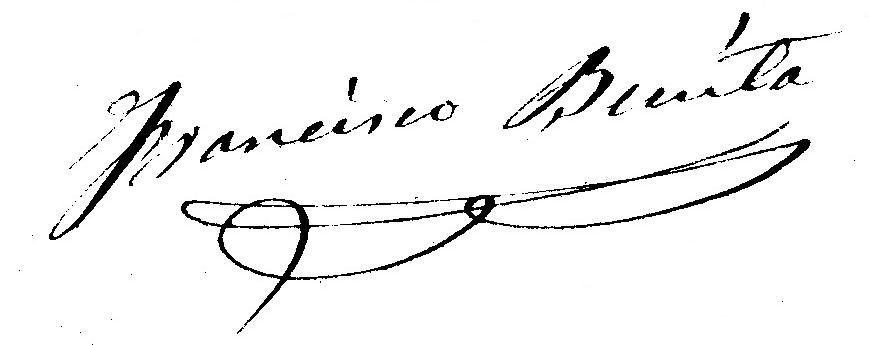 Francisco Benita